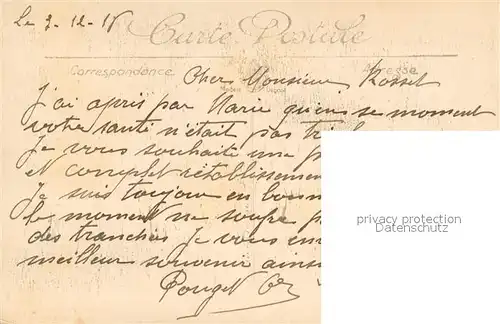 Le 2-12-15
Carte Postale
Correspondance
Adresse
Cher Monsieur Rosset
J'ai appris par Marie qu'en se moment
votre santé n'était pas
Je vous souhaite une
et complet rétablissement
Je suis toujour en bonn
le moment ne soupe
des tranchés Je vous en
meilleur souvenir ains
Pouget
privacy protection
Datenschutz